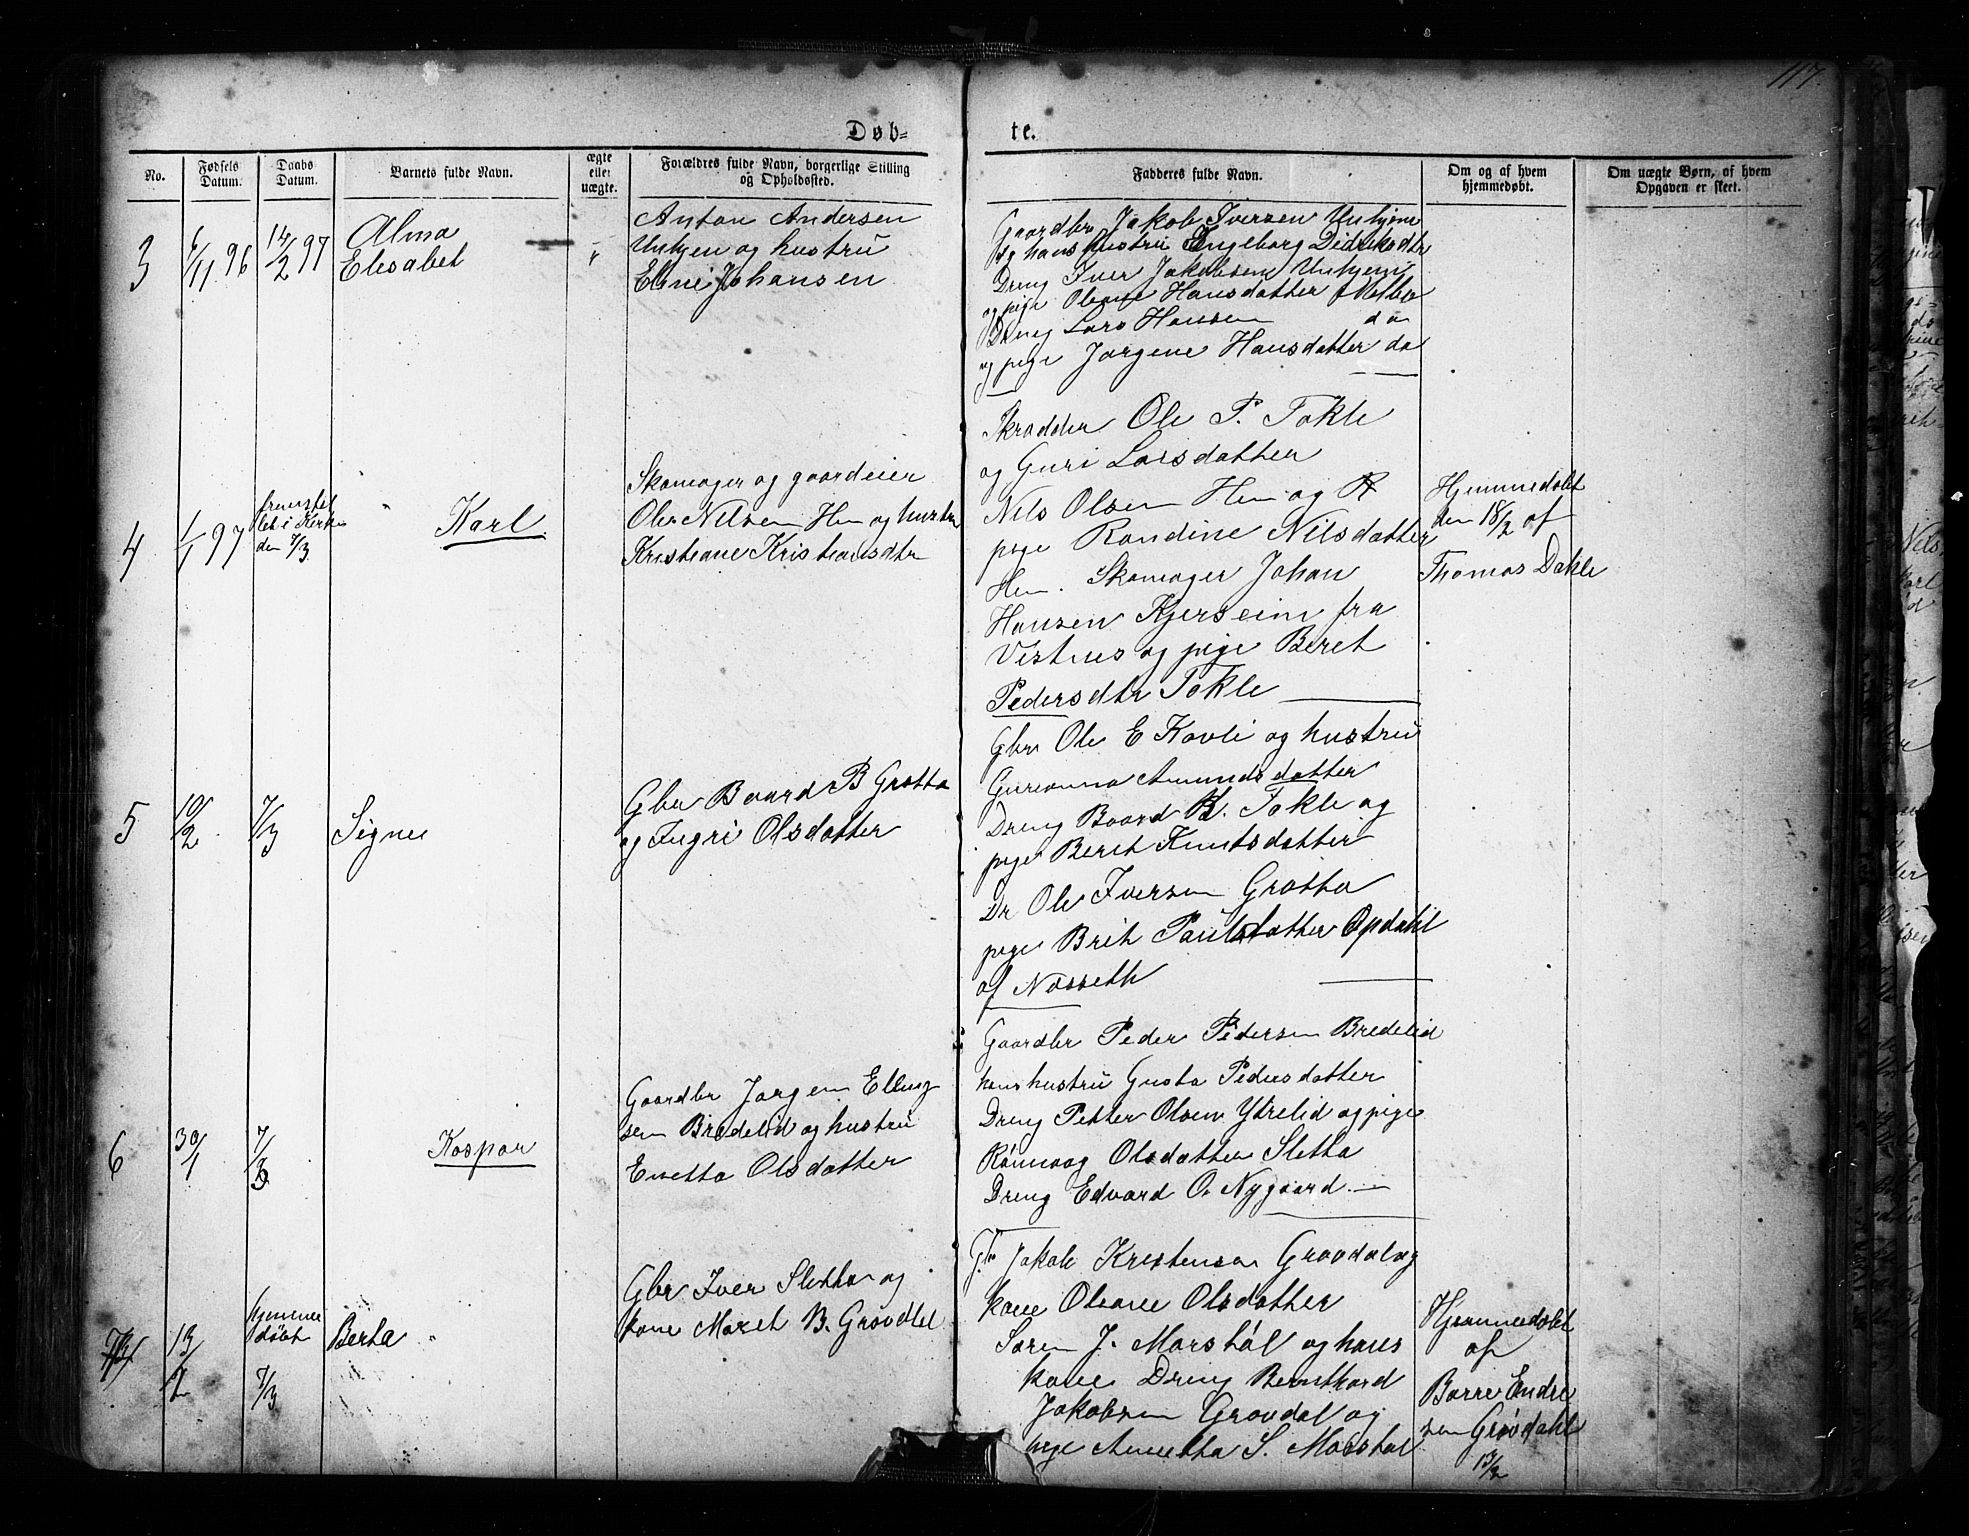 117.
Døb-
te.
No.
Fødsels Datum.
Daabs Datum.
Barnets fulde Navn.
ægte eller uægte.
Forældres fulde Navn, borgerlige Stilling og Opholdssted.
Fadderes fulde Navn.
Om og af hvem hjemmedøbt.
Om uægte Børn, af hvem Opgaven er skeet.
3
6/11 96
14/2 97
Alma
Elisabet
Anton Andersen
Unhjen og hustru
Eline Johansen
Gaardbr Jakob Iversen Unhjem
og hans hustru Engeborg Didriksdtr
Dreng Iver Jakobsen Unhjem
og pige Oleane Hansdatter
Dreng Lars Hansen do
og pige Jørgene Hansdatter do
4
1/1 97
fremstil
let i Kirken
den 7/3
Karl
Skomager og gaardeier
Ole Nilsen Hen og hustru
Kristiane Kristiansdtr
Skrædder Ole P. Tokle
og Guri Larsdatter
Nils Olsen Hen og
pige Randine Nilsdatter
Hen. Skomager Johan
Hansen Kjerseim fra
Vestnes og pige Beret
Pedersdtr Tokle
Hjemmedøbt
den 18/2 af
Thomas Dahle
5
10/2
7/3
Signe
Gbr Baard B Grøtta
og Ingri Olsdatter
Gbr Ole E Kavli og hustru
Gurianna Amundsdatter
Dreng Baard K. Tokle og
pige Berit Knutsdatter
Dr Ole Iversen Grøtta
pige Brit Paulsdatter Opdahl
af Nesseth
6
30/1
7/3
Kaspar
Gaardbr Jørgen Elling
sen Bredelid og hustru
Enetta Olsdatter
Gaardbr Peder Pedersen Bredelid
hans hustru Gusta Pedersdatter
Dreng Petter Olsen Ytrelid og pige
Rønnaag Olsdatter Sletta
Dreng Edvard O. Nygaard
7
13/2
hjemme
døbt
7/3
Berta
Gbr Iver Sletta og
kone Maret B. Grøvdal
Gbr Jakob Kristensen Grøvdal og
kone Oleane Olsdatter
Søren J. Marstøl og hans
kone Dreng Bernthard
Jakobsen Grøvdal og
pige Anetha S. Marstøl
Hjemmedøbt
af
Børre Endre
sen Grøvdahl
13/2